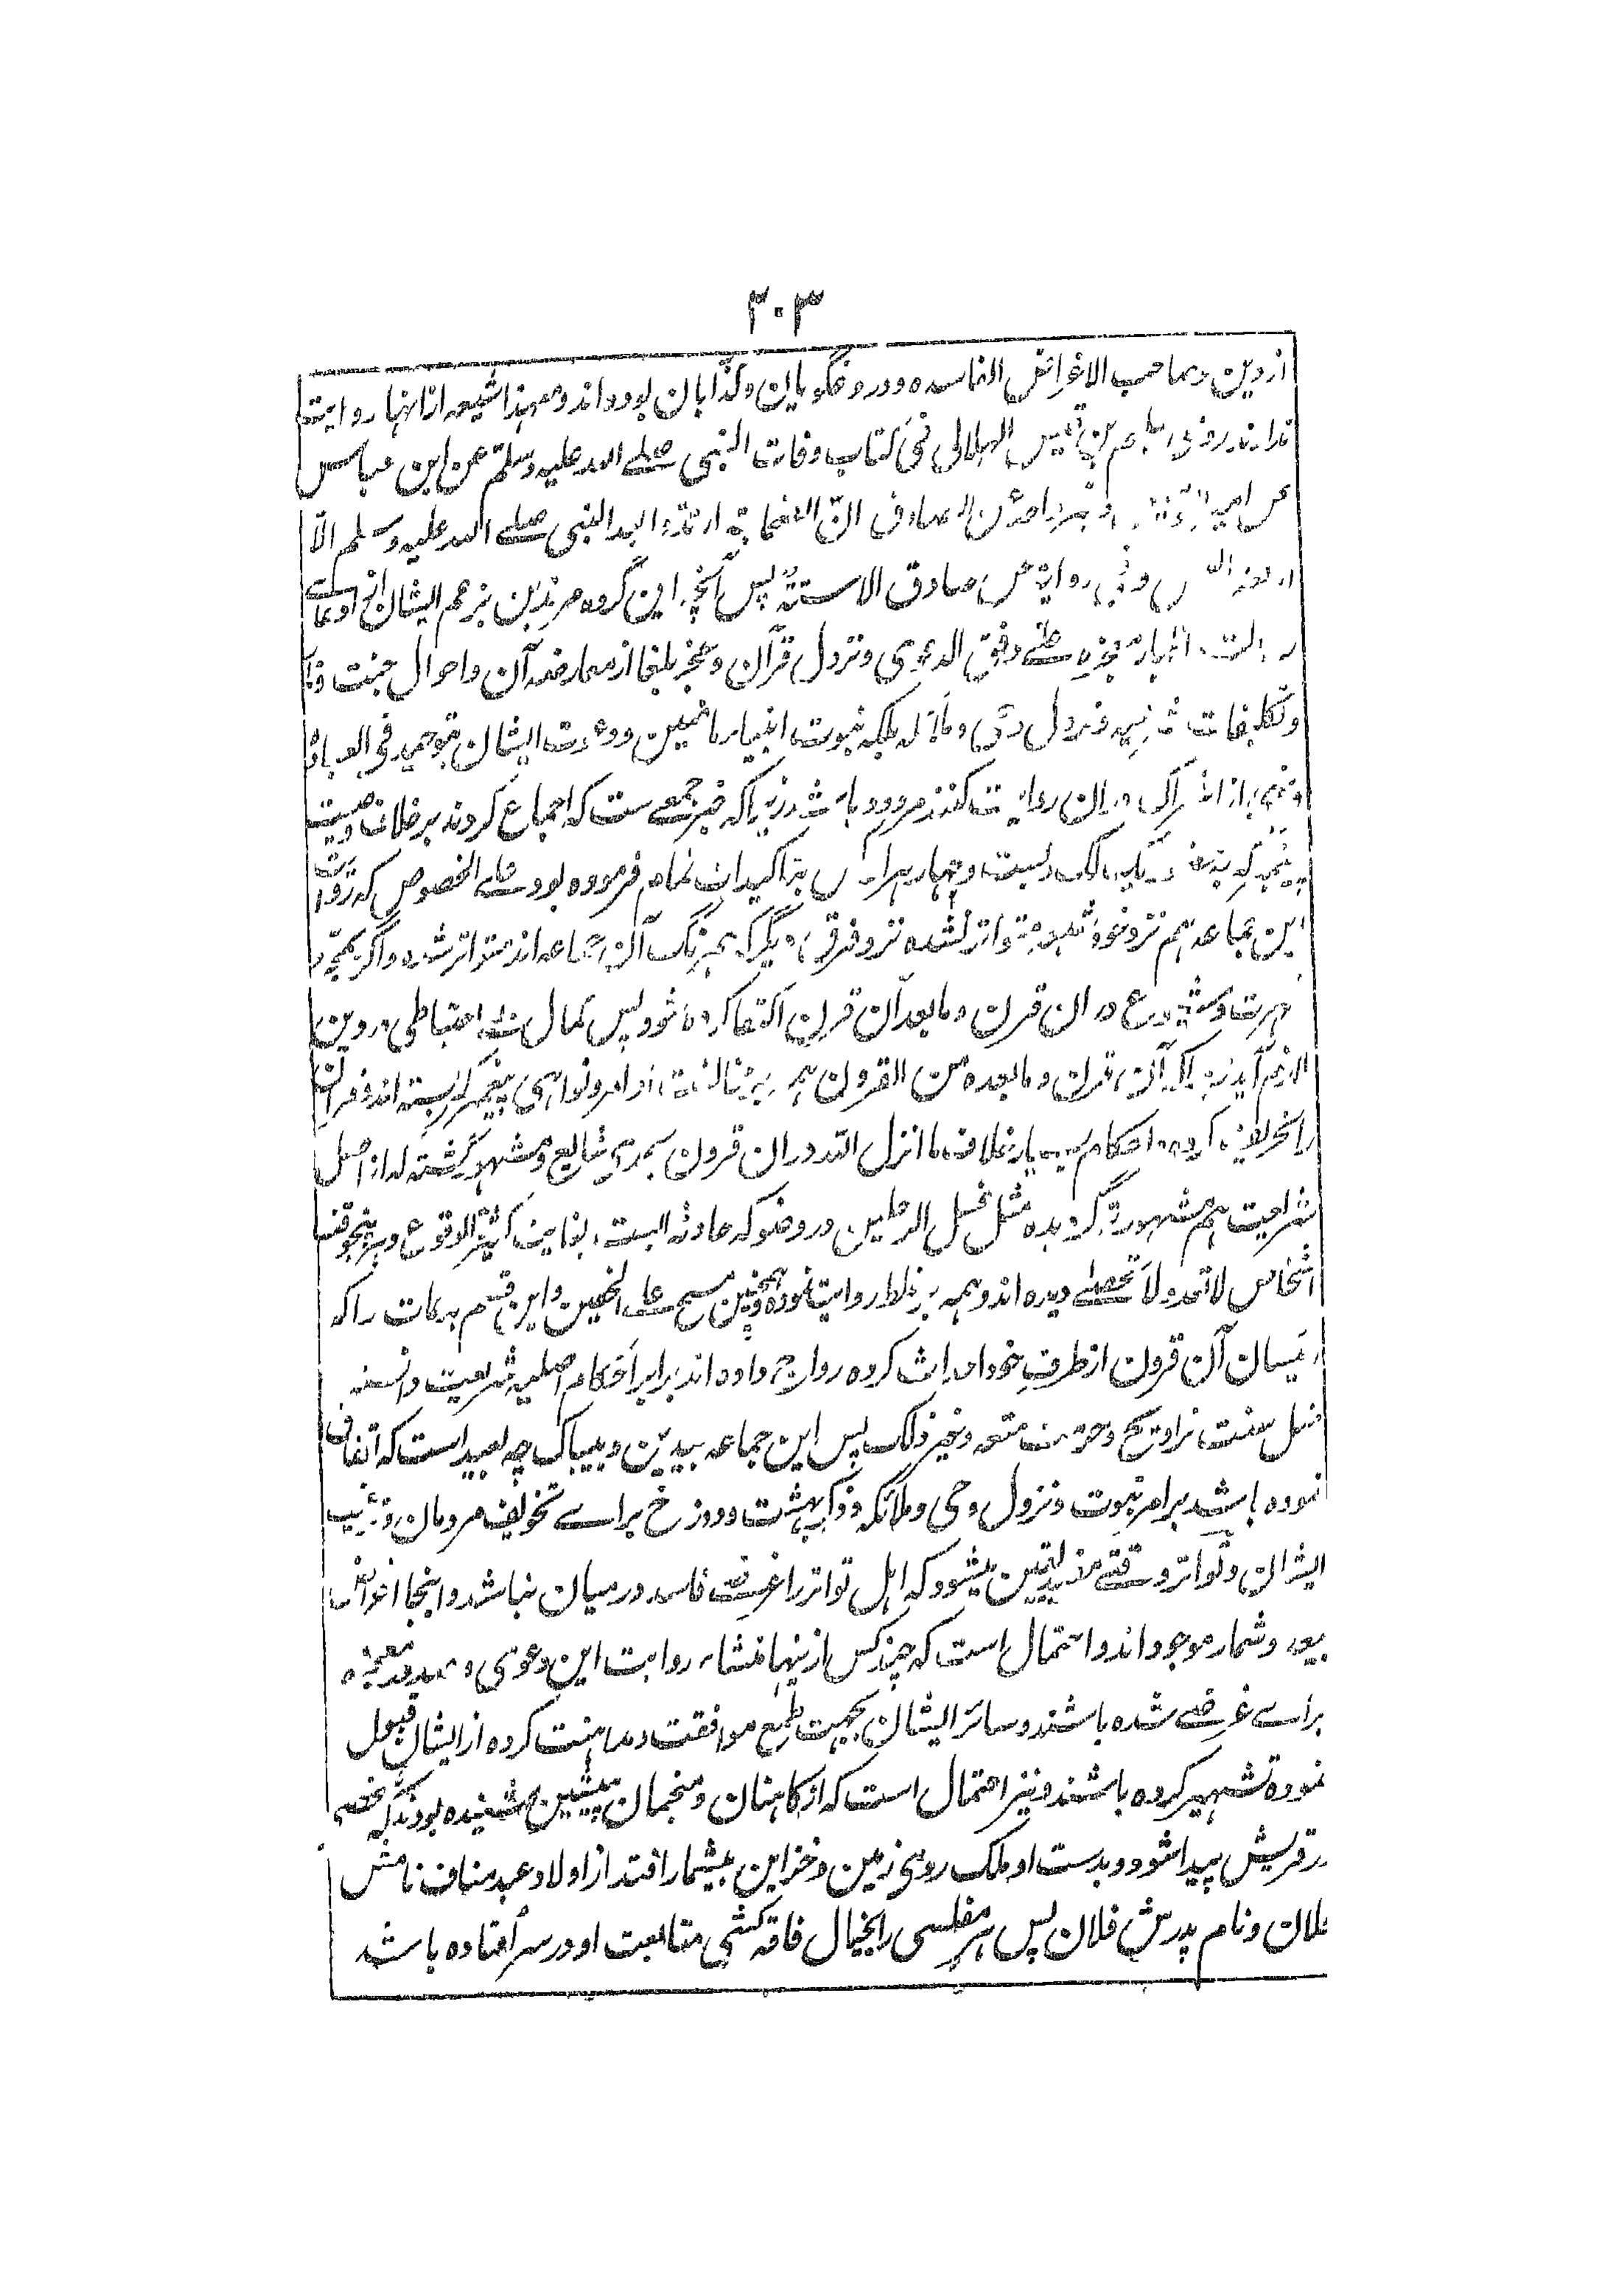 ۳۰۳
از دین و صاحب الاغراض الفاسده و دروغگویان و کذابان بوده اند و معهذا شیعه ازانها روایت
دارند روی سلیم بن قیس الهلالی فی کتاب وفات النبی صلے اللہ علیہ وسلم عن ابن عباس
عن امیر الصادق ان الصحابة ارتدوا بعد النبی صلے اللہ علیہ وسلم الا
اربعة و فی روایة عن صادق الا ستة پس آنچه این گروه مرتدین بزعم ایشان از ادعای
رسالت و اظهار معجزه علے وفق الدعوی و نزول قرآن و عجز بلغا از معارضه آن و احوال جنت و نار
و تکلیفات شرعیه و نزول وحی و ملائکه بلکه نبوت انبیاء ماضیین و دعوت ایشان بتوحید فی العبادة
و نهی از اشراک دران روایت کنند مردود باشد زیرا که خبر جمعے ست که اجماع کردند بر خلاف وصیت
پیغمبر که یک لک و بست و چهار هزار کس بتاکیدات تمام فرموده بود علے الخصوص که
این جماعه هم نزد خود شیعه متواتر نشده نزد فرقهای دیگر که همرنگ آن جماعه اند متواتر شده و اگر بمجرد
شهرت و شیوع دران قرن و ما بعد آن قرن اکتفا کرده شود پس کمال بے احتیاطی در دین
لازم آید زیرا که آن قرن و ما بعده من القرون همه بر مخالفت اوامر و نواهی پیغمبر کمر بسته اند و قرآن
را تحریف کرده و احکام بسیار خلاف ما انزل اللہ دران قرون بحدی شایع و مشهور گشته که از اصل
شریعت هم مشهورتر گردیده مثل غسل الرجلین در وضو که حادثه الیست بغایت کثیر الوقوع و هر پنجوقت
اشخاص لا تعد و لا تحصے دیده اند و همه بر غلط روایت نموده و همچنین مسح علے الخفین و این قسم بدعات را که
رئیسان آن قرون از طرف خود احداث کرده رواج داده اند برابر احکام اصلیه شریعت دانسته
مثل سنت تراویح و حرمت متعه و غیر ذلک پس این جماعه بیدین و بیباک چه بعید است که اتفاق
نموده باشند بر امر نبوت و نزول وحی و ملائکه و ذکر بهشت و دوزخ براے تخویف مردمان و ترغیب
ایشان و تواتر وقتے مفید یقین میشود که اهل تواتر را غرضے فاسد درمیان نباشد و اینجا اغراض
بیحد و شمار موجود اند و احتمال است که چند کس ازینها منشاء روایت این دعوی و صدور معجزه
براے غرضے شده باشند و سائر ایشان بجهت طمع موافقت و مداهنت کرده از ایشان قبول
نموده تشهیر کرده باشند و نیز احتمال است که از کاهنان و منجمان پیشین شنیده بودند که شخصے
در قریش پیدا شود و بدست او ملک روی زمین و خزاین بیشمار افتد از اولاد عبد مناف نامش
فلان و نام پدرش فلان پس هر مفلسی را بخیال فاقه کشی متابعت او در سر افتاده باشد